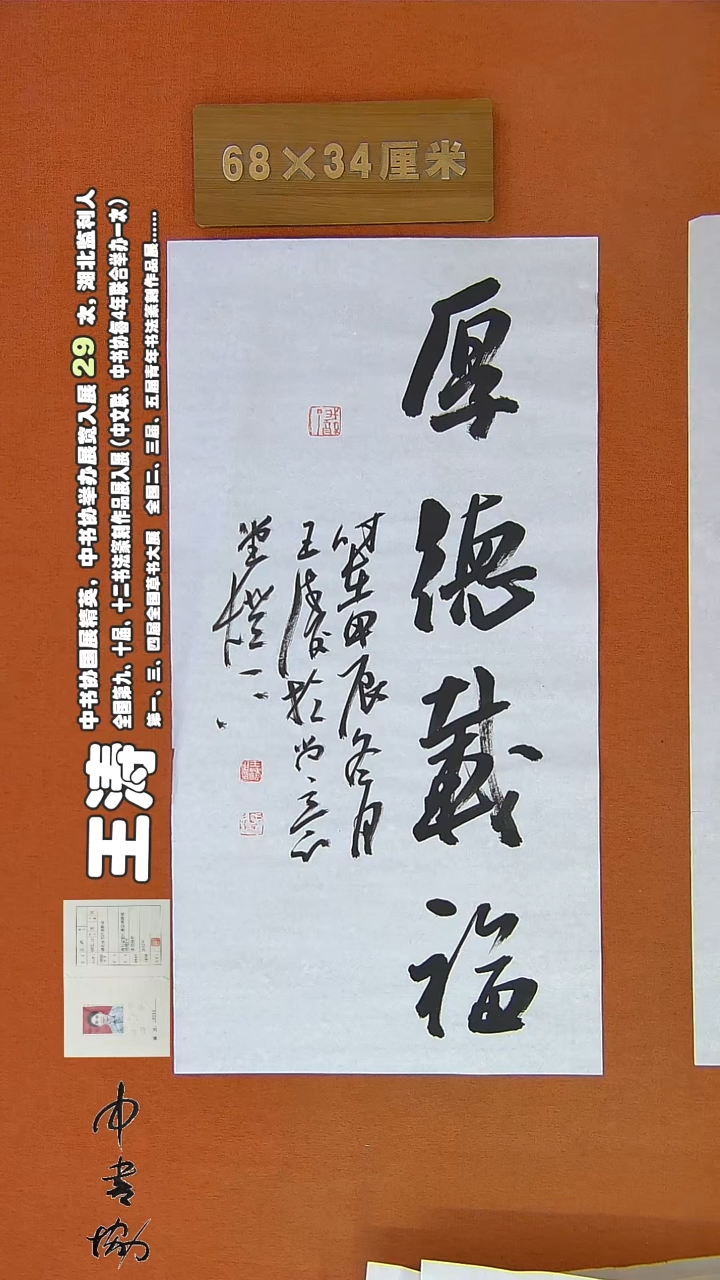 68×34厘米
厚德载福
时在甲辰冬月
王涛于尚意
堂
中书协国展精英，中书协举办展览入展 29 次，湖北监利人
全国第九、十届、十二书法篆刻作品展入展（中文联、中书协每4年联合举办一次）
第一、三、四届全国草书大展 全国二、三届、五届青年书法篆刻作品展……
王涛
中书协